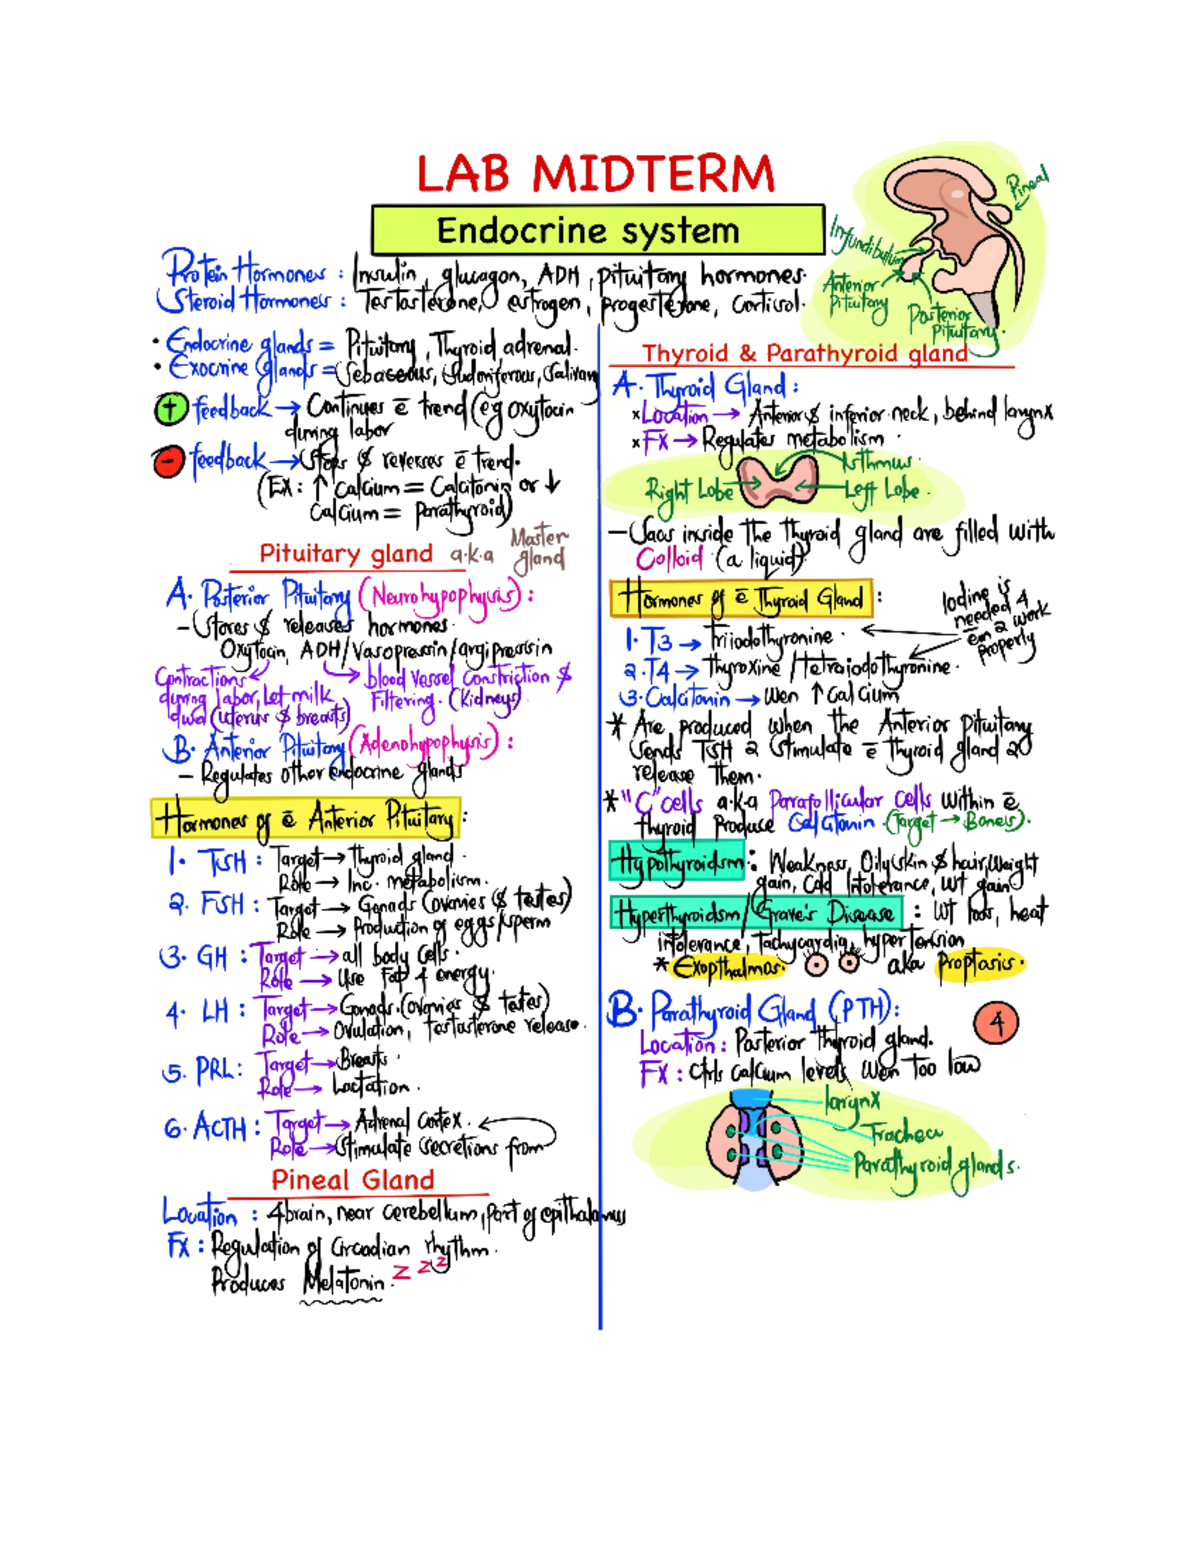 LAB MIDTERM
Endocrine system
Pineal
Infundibulum
Anterior Pituitary
Posterior Pituitary.
Protein Hormones : Insulin, glucagon, ADH, pituitary hormones.
Steroid Hormones : Testosterone, estrogen, progesterone, Cortisol.
• Endocrine glands = Pituitary, Thyroid, adrenal.
• Exocrine glands = Sebaceous, Sudoriferous, Salivary
+ feedback → Continues ē trend (eg oxytocin
during labor
- feedback → Stops & reverses ē trend.
(Ex: ↑ Calcium = Calcitonin or ↓
Calcium = Parathyroid)
Pituitary gland a.k.a Master gland
A. Posterior Pituitary (Neurohypophysis) :
– Stores & releases hormones.
Oxytocin, ADH/Vasopressin/argipressin
Contractions
during labor, Let milk
(uterus & breasts)
→ blood vessel constriction &
Filtering. (Kidneys)
B. Anterior Pituitary (Adenohypophysis) :
– Regulates other endocrine glands
Hormones of ē Anterior Pituitary :
1. TSH : Target → Thyroid gland.
Role → Inc. metabolism.
2. FSH : Target → Gonads (ovaries & testes)
Role → Production of eggs/sperm
3. GH : Target → all body cells.
Role → Use Fat 4 energy.
4. LH : Target → Gonads. (ovaries & testes)
Role → Ovulation, testosterone release.
5. PRL : Target → Breasts.
Role → Lactation.
6. ACTH : Target → Adrenal Cortex.
Role → Stimulate secretions from
Pineal Gland
Location : 4brain, near cerebellum, part of epithalamus
Fx : Regulation of Circadian rhythm.
Produces Melatonin. z z z
Thyroid & Parathyroid gland
A. Thyroid Gland :
× Location → Anterior & inferior neck, behind larynx
× FX → Regulates metabolism.
Isthmus.
Right Lobe
Left Lobe.
– Sacs inside the Thyroid gland are filled with
Colloid (a liquid)
Hormones of ē Thyroid Gland :
Iodine is
needed 4
em 2 work
properly
1. T3 → Triiodothyronine.
2. T4 → Thyroxine / Tetraiodothyronine.
3. Calcitonin → Wen ↑ Calcium
* Are produced when the Anterior Pituitary
sends TSH 2 stimulate ē thyroid gland 20
release them.
* "C" cells a.k.a Parafollicular Cells within ē
thyroid Produce Calcitonin. (Target → Bones).
Hypothyroidsm : Weakness, Oily skin & hair, Weight
gain, Cold Intolerance, WT gain
Hyperthyroidsm/Grave's Disease : WT loss, heat
intolerance, Tachycardia, hypertension
* Exopthalmos. aka Proptosis.
B. Parathyroid Gland (PTH) : 4
Location : Posterior thyroid gland.
FX : Ctrls calcium levels wen too low
larynx
Trachea
Parathyroid glands.